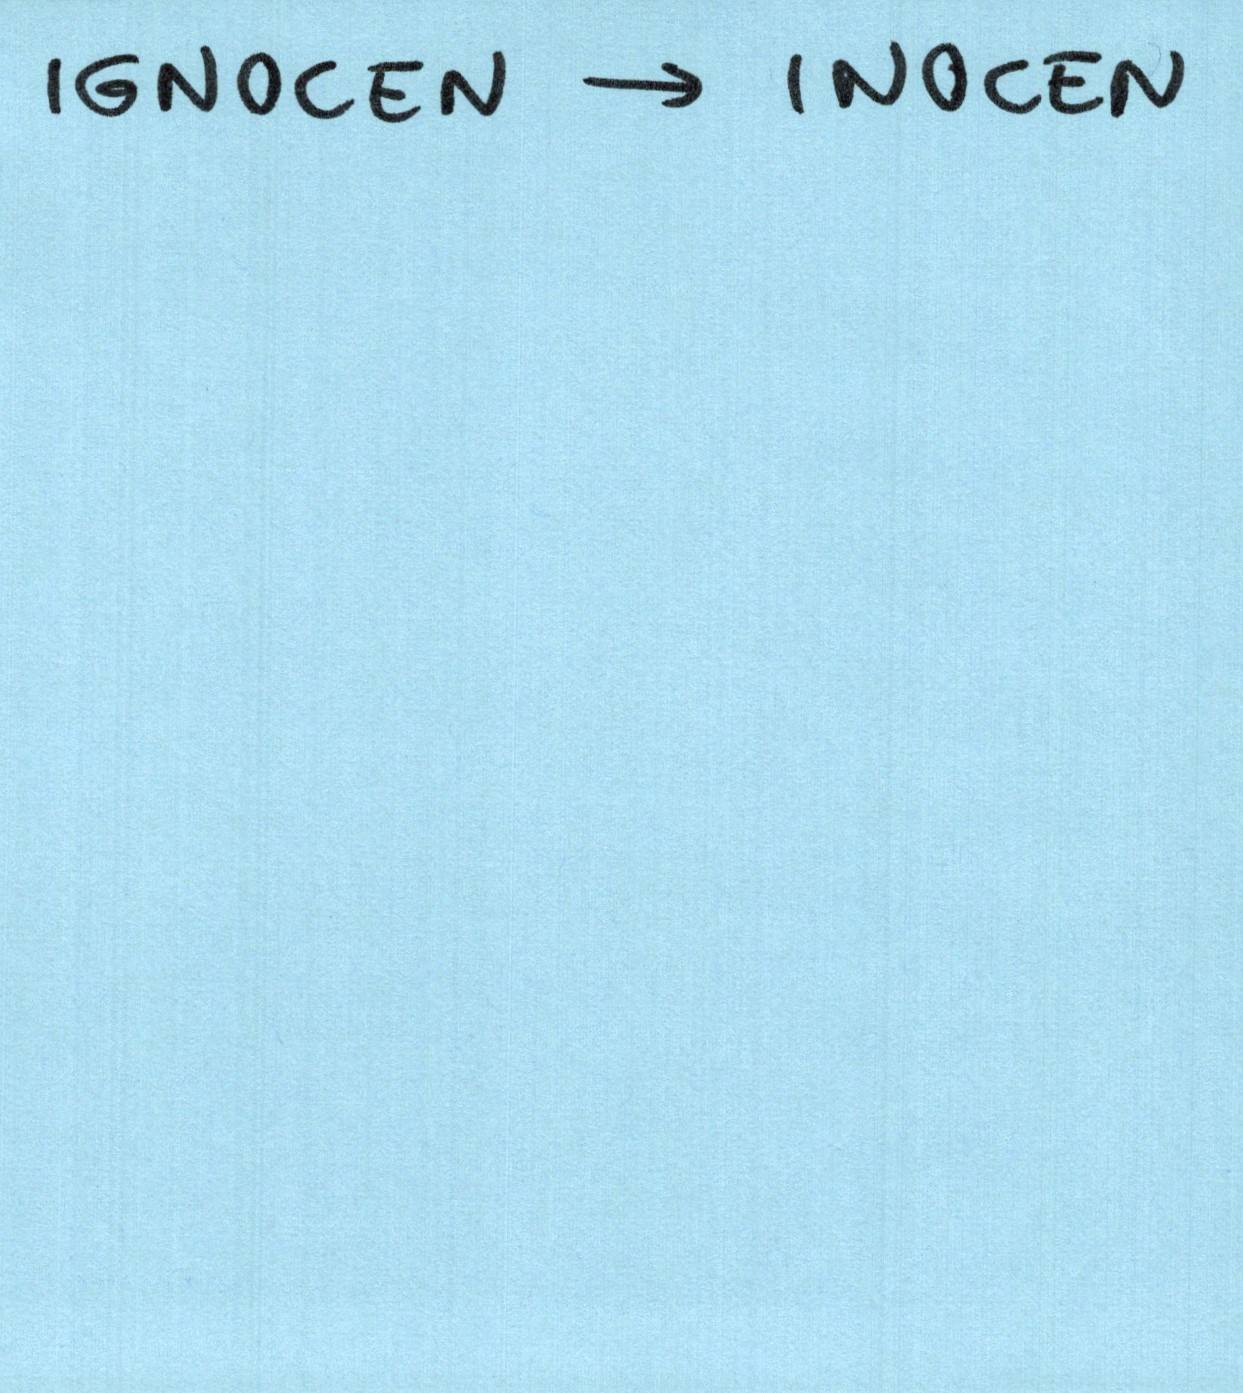 IGNOCEN → INOCEN